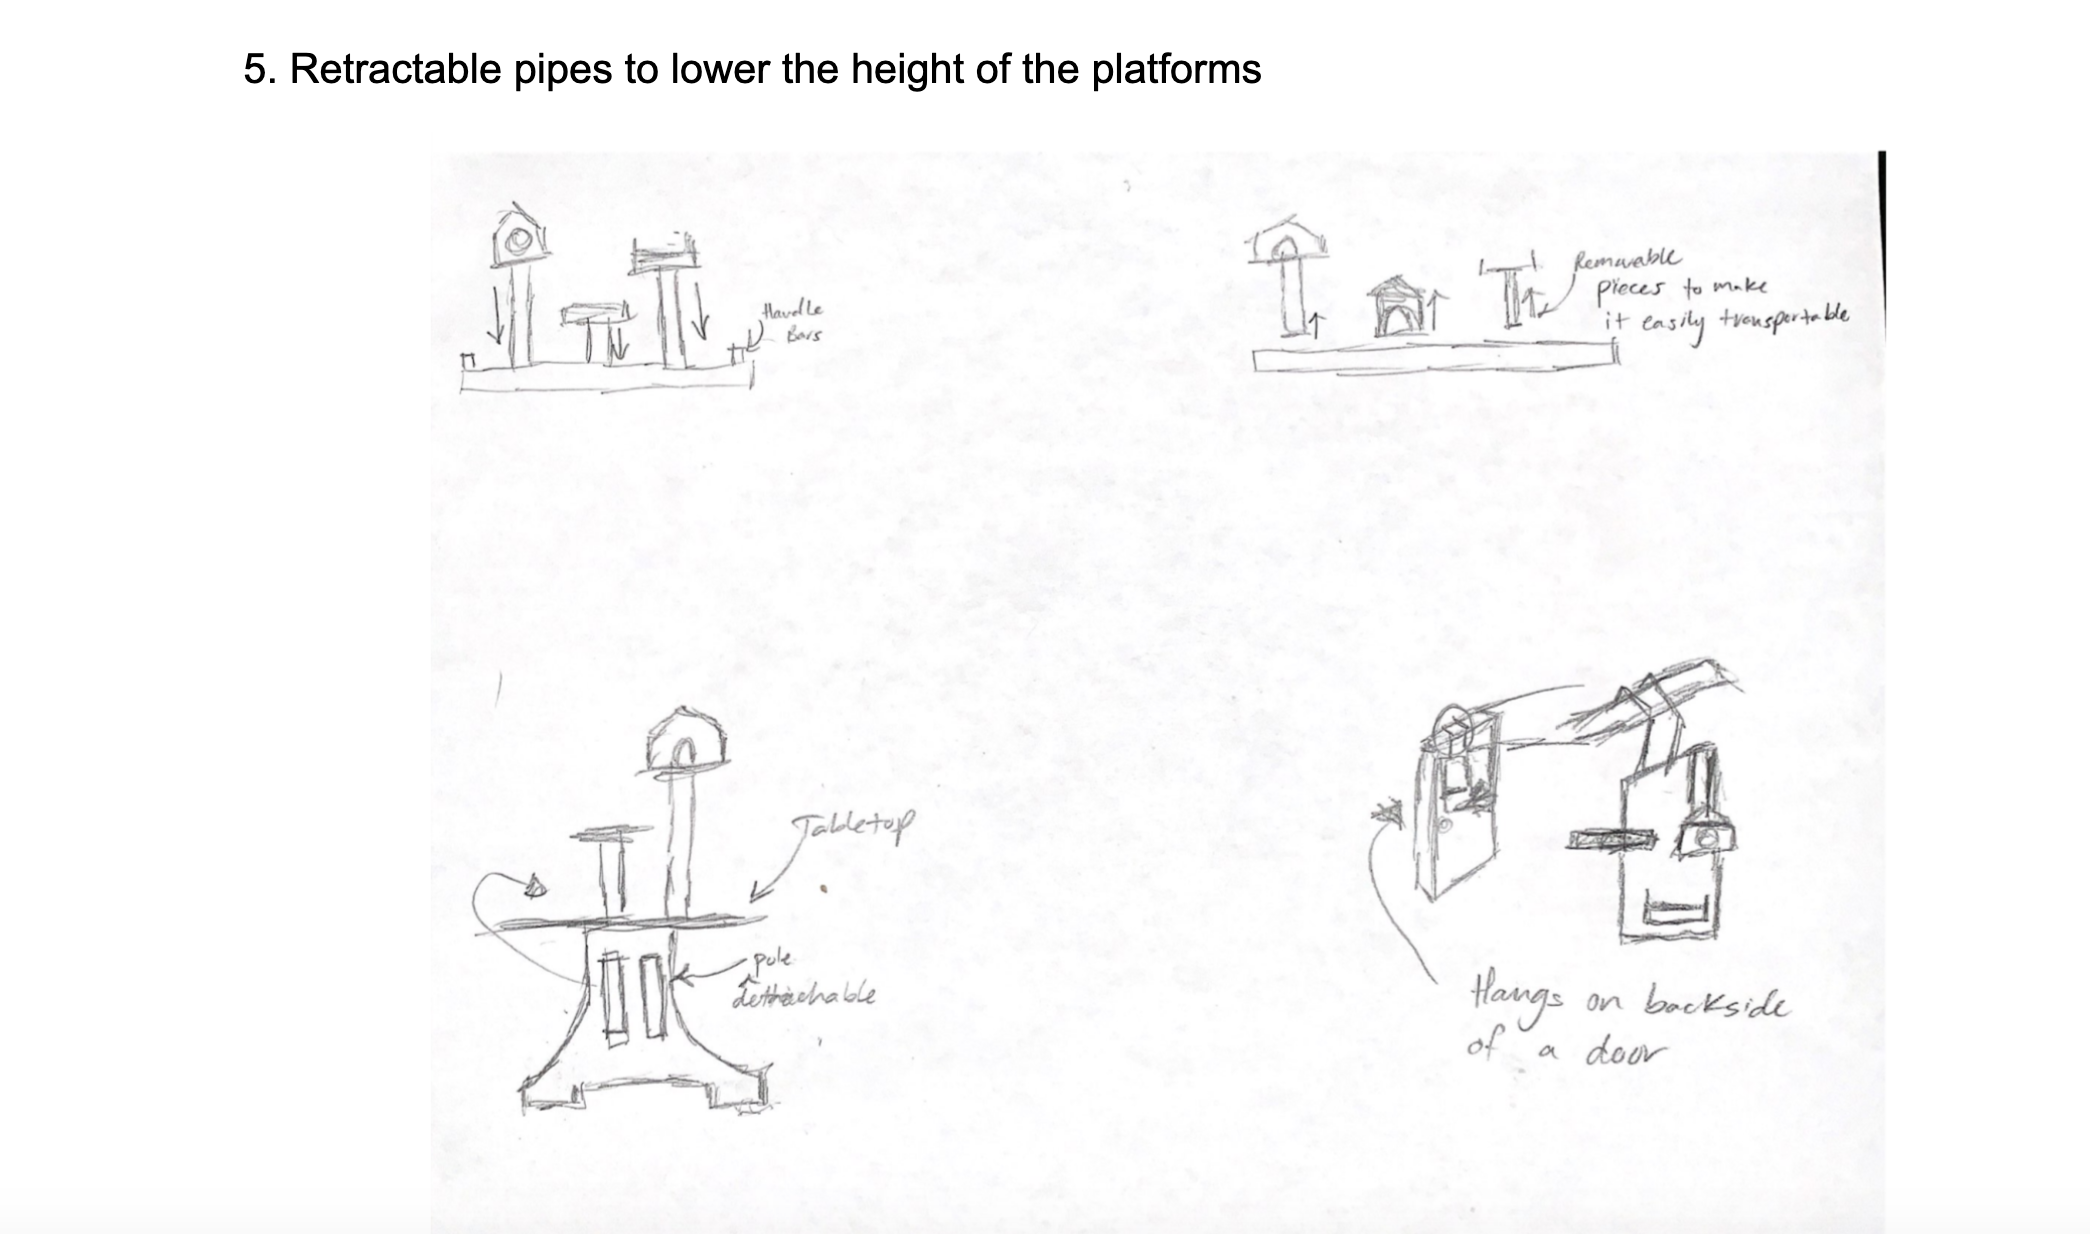 5. Retractable pipes to lower the height of the platforms
Handle
Bars
Removable
pieces to make
it easily transportable
Tabletop
pole
detachable
Hangs on backside
of a door